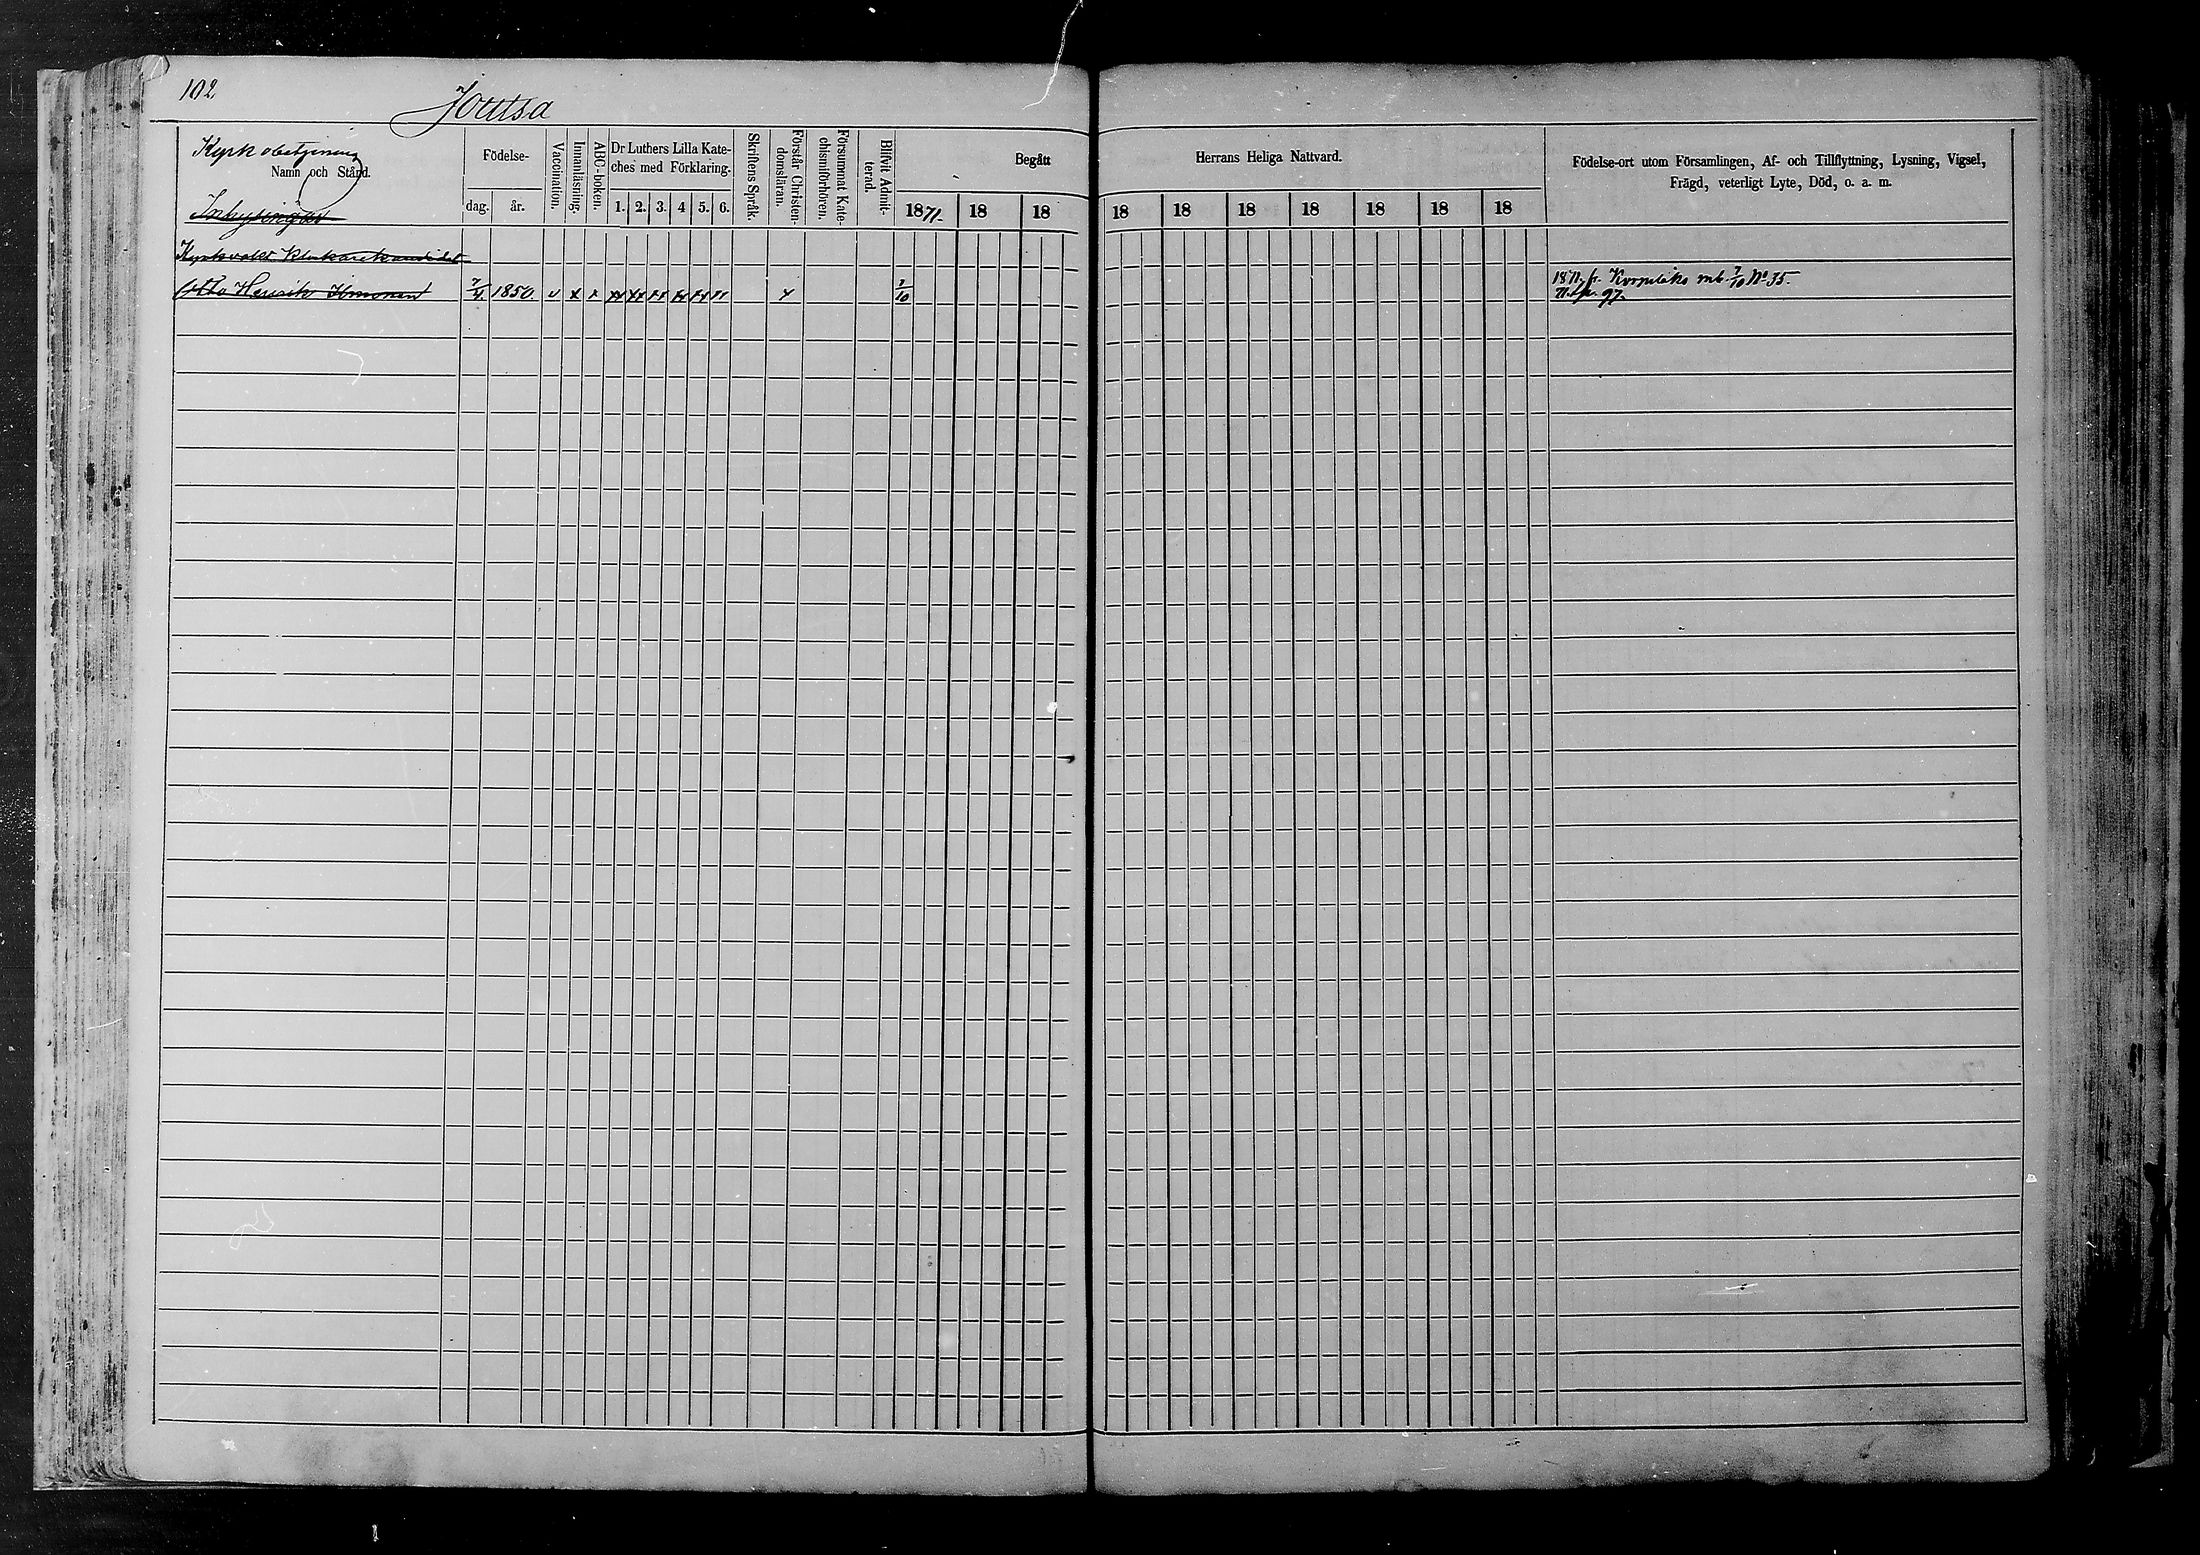 102
Joutsa
Kyrkobetjening
Namn och Stånd.
Inhysingar
Födelse-
dag.
år.
Vaccination.
Innanläsning.
ABC-boken.
Dr Luthers Lilla Kate-
ches med Förklaring.
1. 2. 3. 4 5. 6.
Skriftens Språk.
Förstår Christen-
domsläran.
Försummat Kate-
chismiförhören.
Blifvit Admit-
terad.
Begått
1871. 18 18
Herrans Heliga Nattvard.
18 18 18 18 18 18 18
Födelse-ort utom Församlingen, Af- och Tillflyttning, Lysning, Vigsel,
Frägd, veterligt Lyte, Död, o. a. m.
Klockarekandidat
Otto Henrik 7/4 1850. v x x xx xx xx xx xx x 7/10
1871 fr. mb 7/10 No 35.
97.